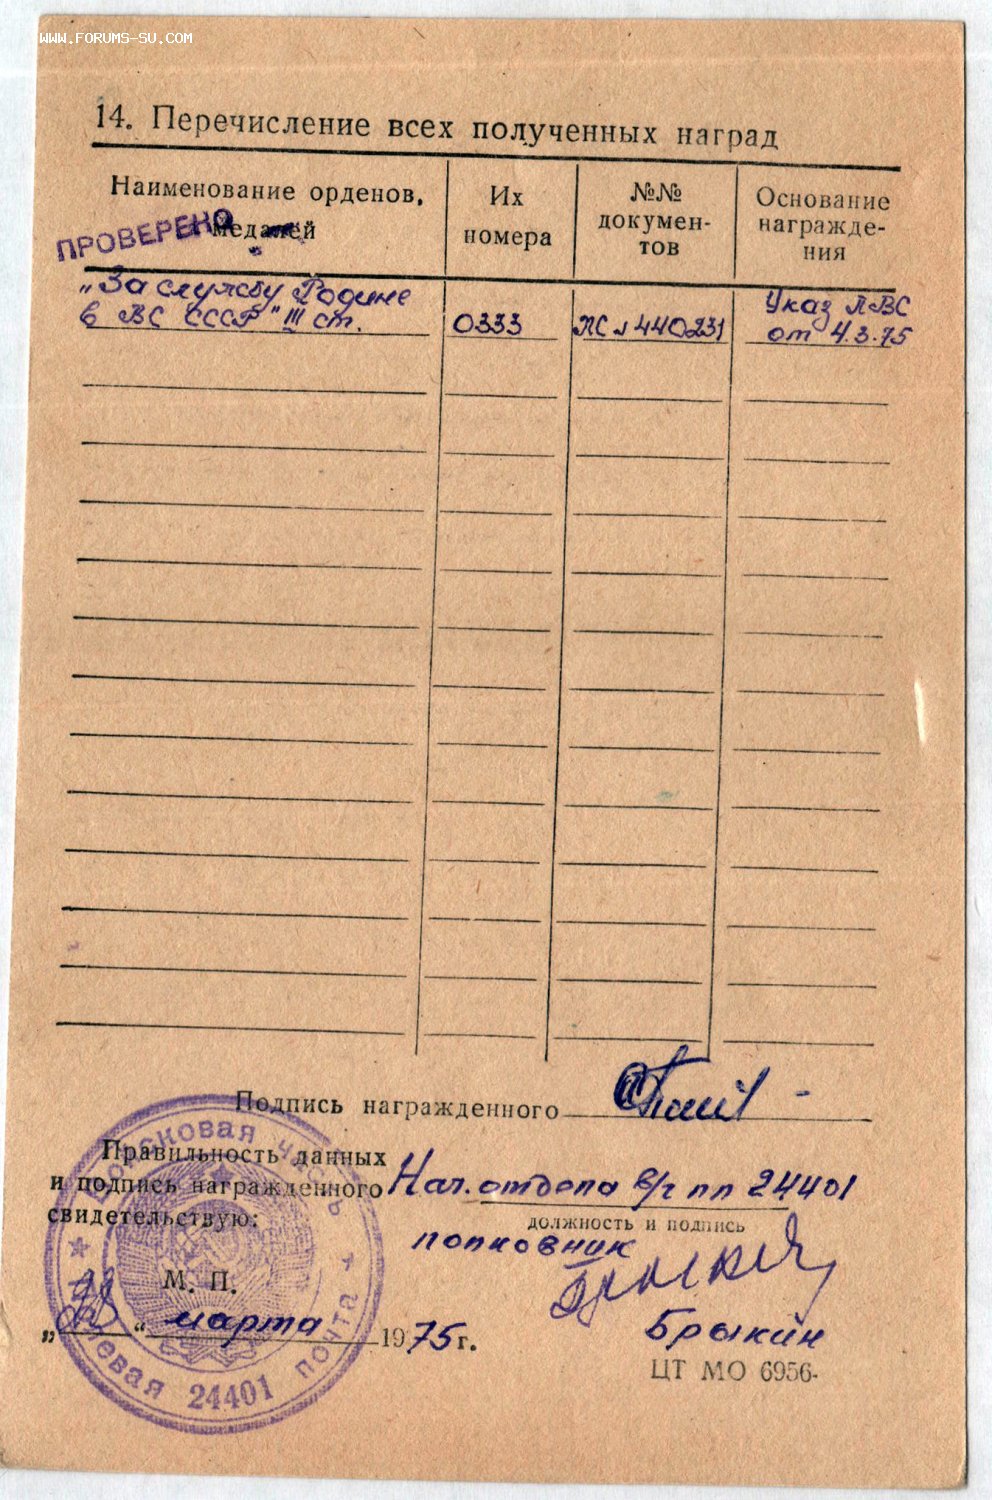 WWW.FORUMS-SU.COM
14. Перечисление всех полученных наград
Наименование орденов, медалей
Их номера
№№ докумен-
тов
Основание
награжде-
ния
ПРОВЕРЕНО
„За службу Родине
в ВС СССР" III ст.
0333
440231
Указ ПВС
от 4.3.75
Подпись награжденного
Правильность данных
и подпись награжденного
свидетельствую:
Нач. отдела в/ч пп 24401
должность и подпись
полковник
Брыкин
М. П.
„ “ марта 1975 г.
ЦТ МО 6956-
Войсковая часть
полевая почта
24401